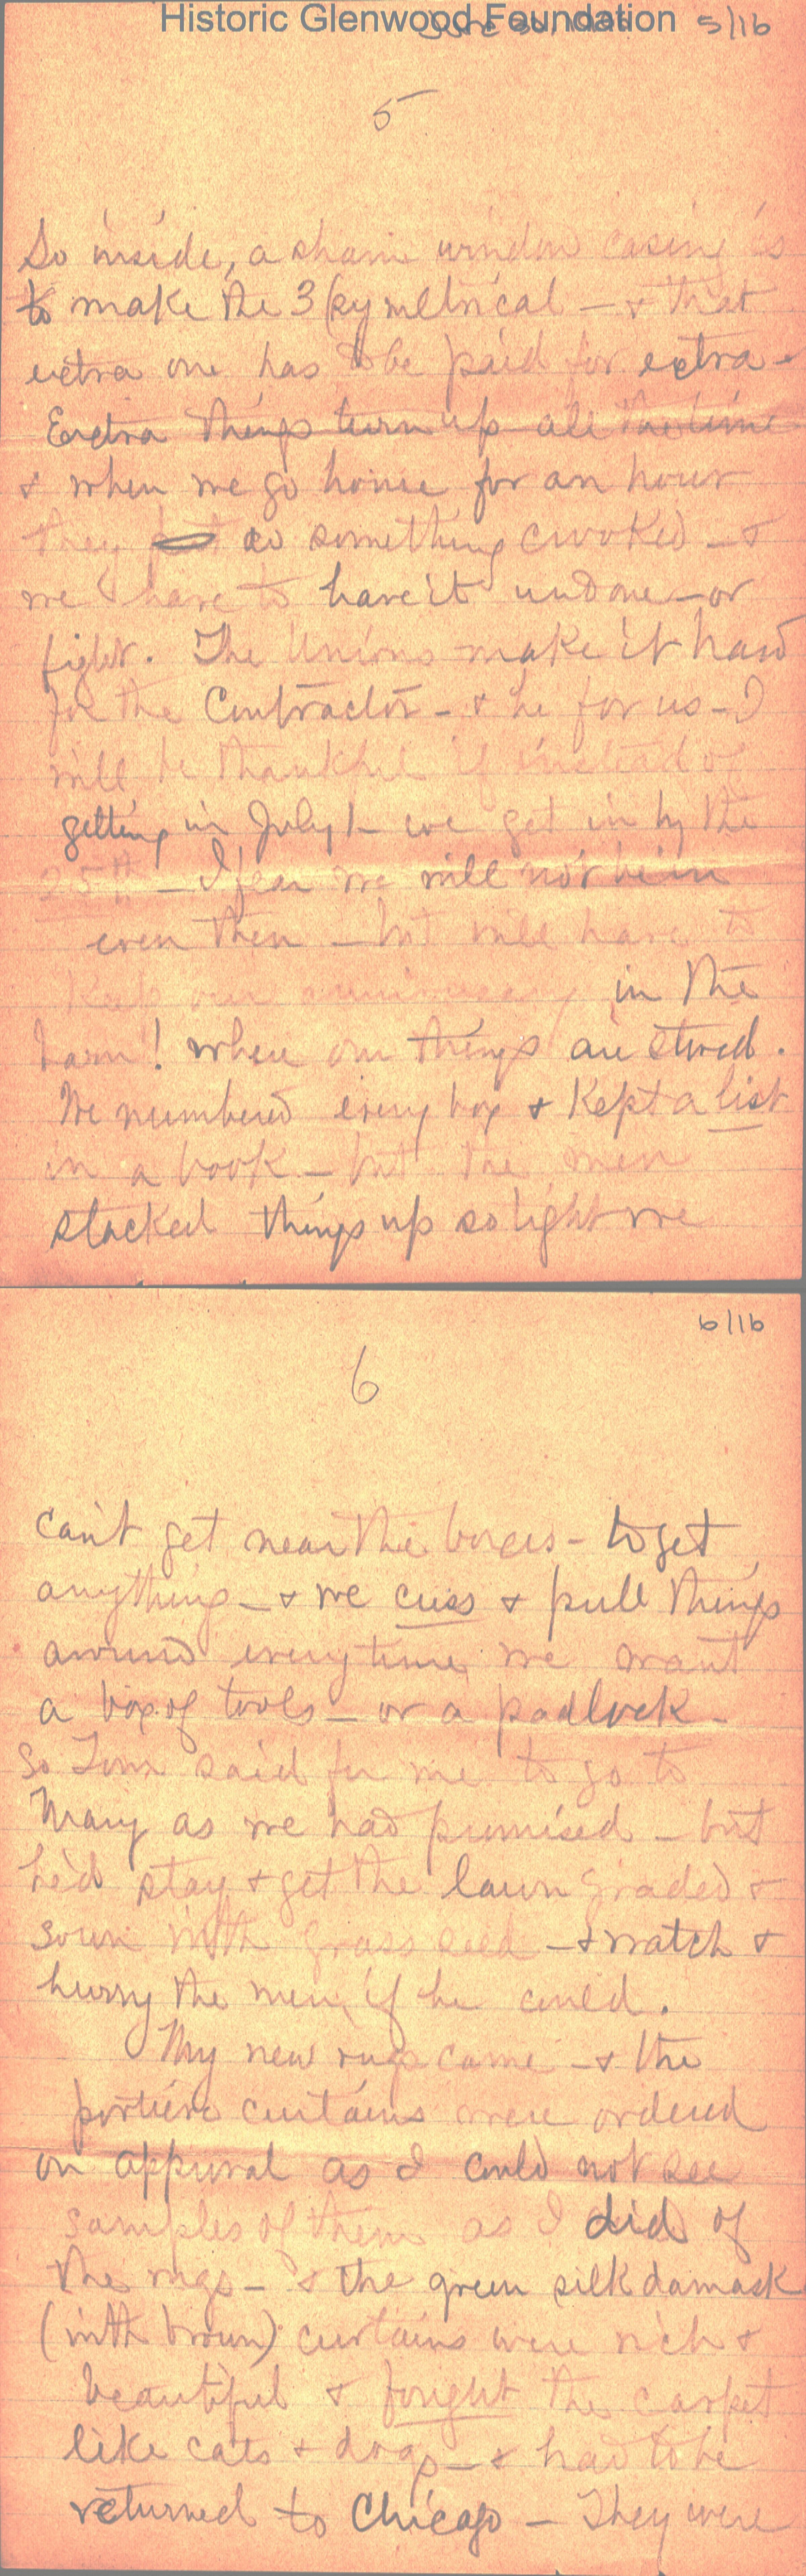 Historic Glenwood Foundation
5/16
5
So inside, a sham window casing is
to make the 3 symetrical — & that
extra one has to be paid for extra —
Extra things turn up all the time
& when we go home for an hour
they do something crooked — &
we have to have it undone — or
fight. The Unions make it hard
for the Contractor — & he for us — I
will be thankful if instead of
getting in July 1 — we get in by the
25th — I fear we will not be in
even then — but will have to
keep our anniversary in the
barn! where our things are stored.
We numbered every box & kept a list
in a book — but the men
stacked things up so tight we
6/16
6
can't get near the boxes — to get
anything — & we cuss & pull things
around every time we want
a box of tools — or a padlock —
So Tom said for me to go to
Mary as we had promised — but
he'd stay & get the lawn graded &
sown with grass seed — & watch &
hurry the men, if he could.
My new rugs came — & the
portiere curtains were ordered
on approval as I could not see
samples of them as I did of
the rugs — & the green silk damask
(with brown) curtains were rich &
beautiful & fought the carpet
like cats & dogs — & had to be
returned to Chicago — They were